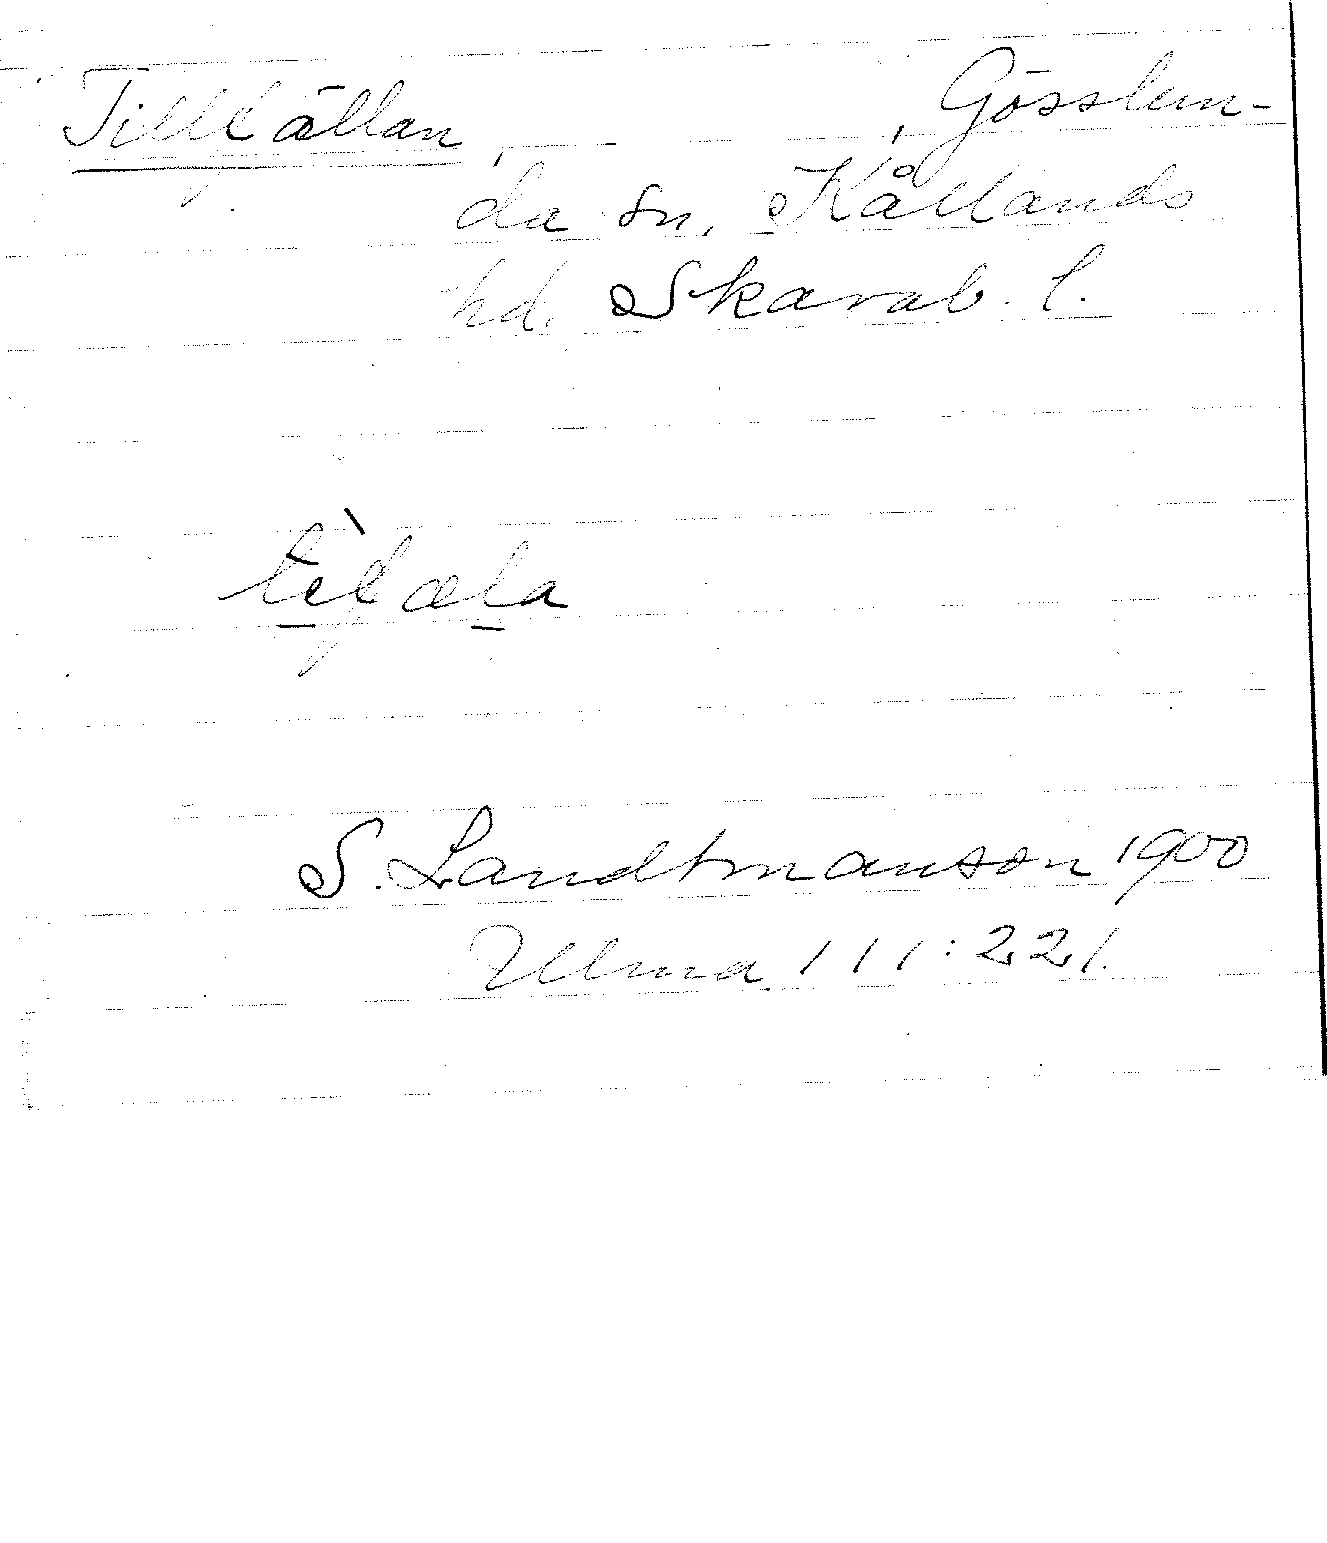 Tillkällan, , Gösslun-
da sn, Kållands
hd. Skarab. l.
S. Landtmanson 1900
Ulma 111:221.